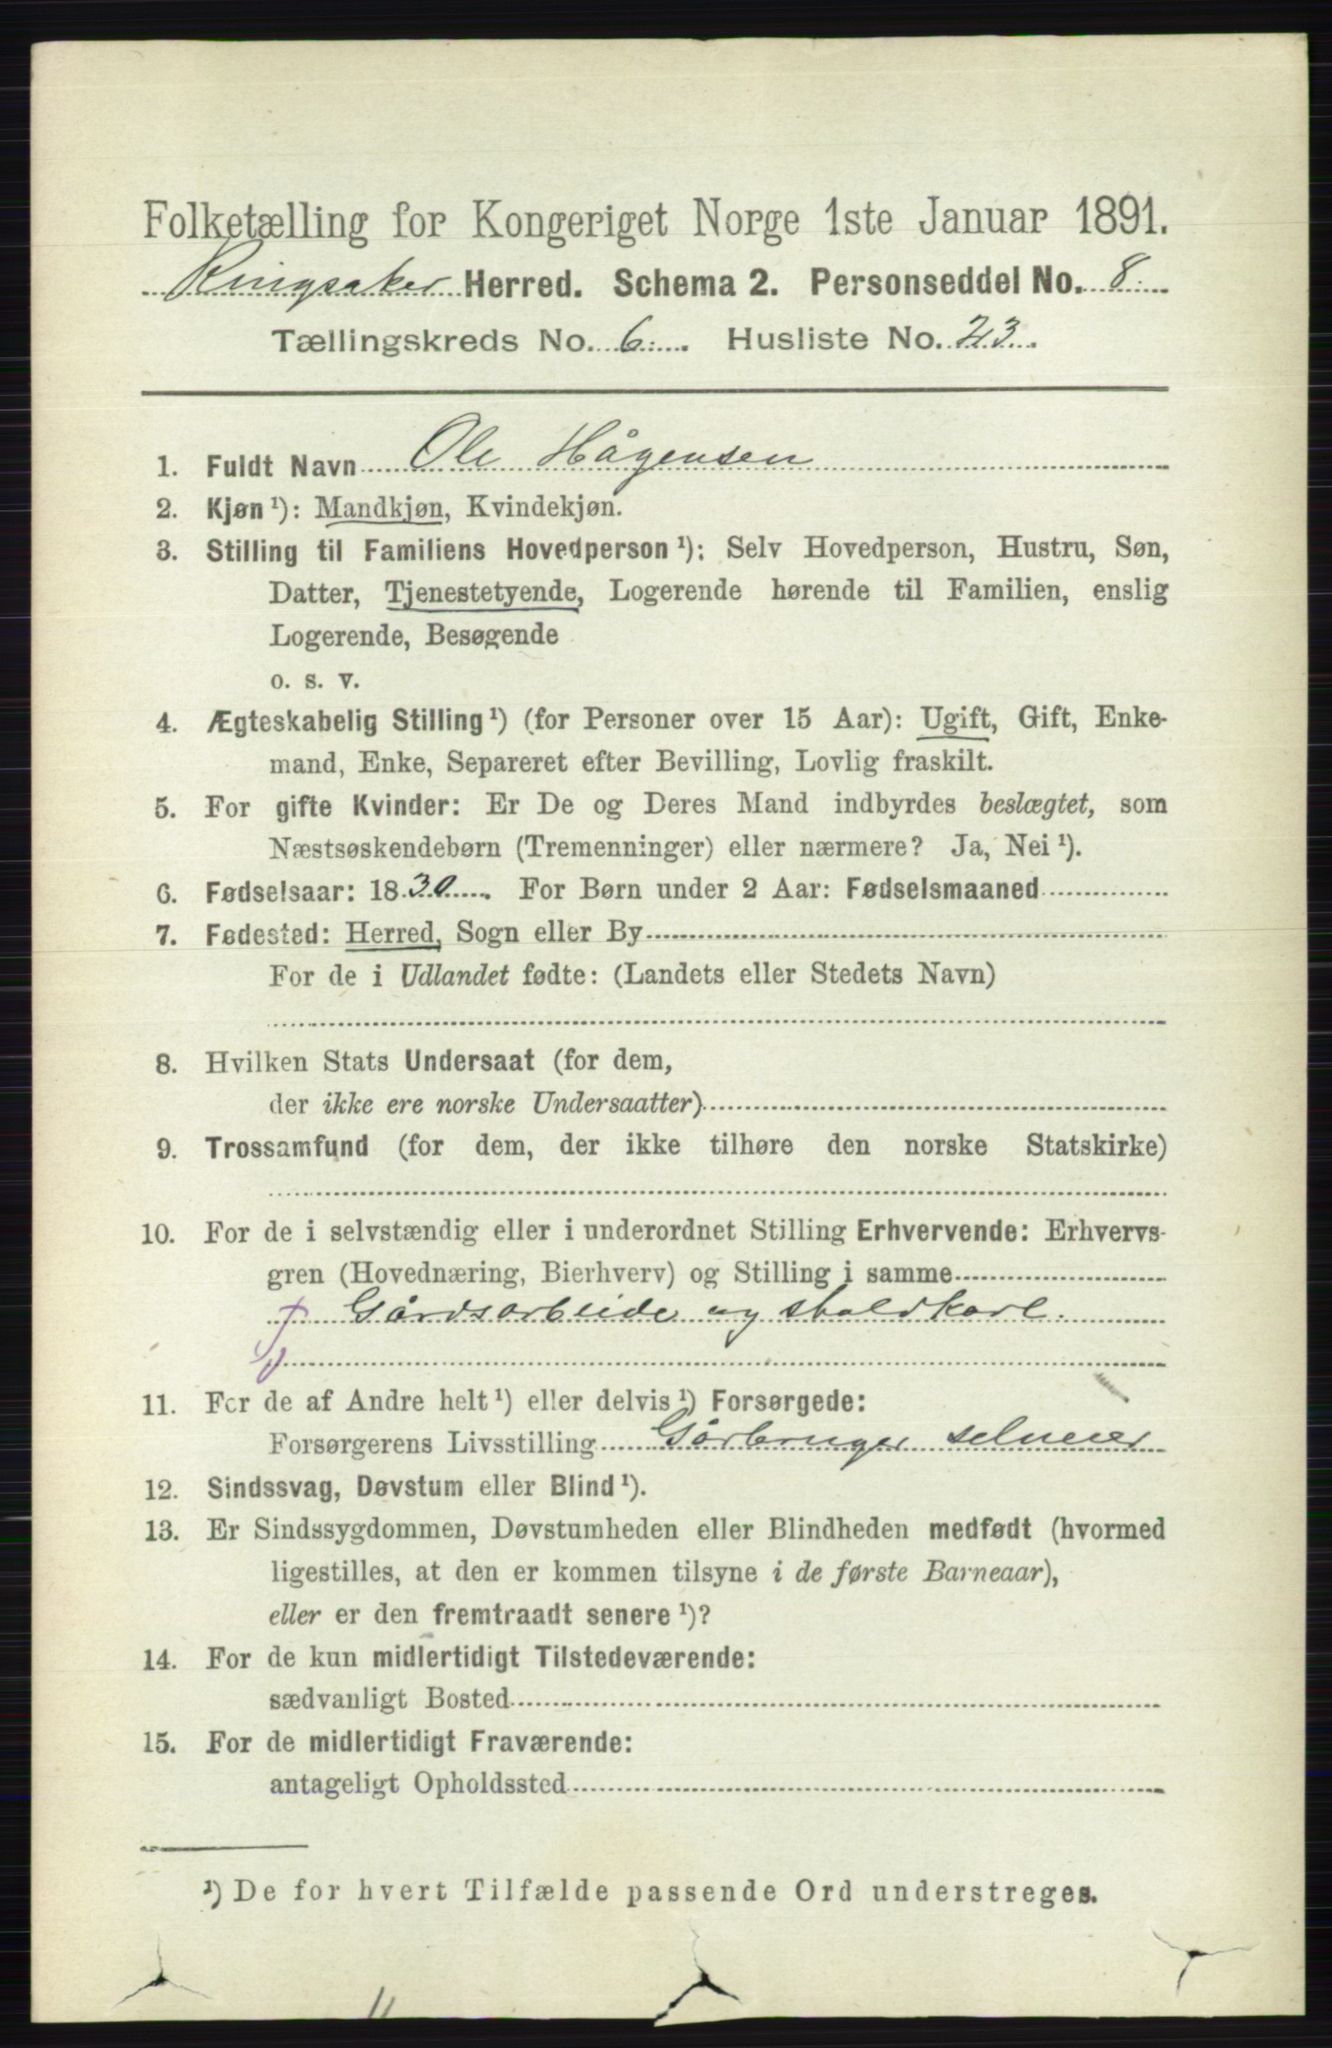 Folketælling for Kongeriget Norge 1ste Januar 1891.
Ringsaker Herred. Schema 2. Personseddel No. 8.
Tællingskreds No. 6. Husliste No. 23.
1. Fuldt Navn Ole Hågensen
2. Kjøn¹): Mandkjøn, Kvindekjøn.
3. Stilling til Familiens Hovedperson¹): Selv Hovedperson, Hustru, Søn,
Datter, Tjenestetyende, Logerende hørende til Familien, enslig
Logerende, Besøgende
o. s. v.
4. Ægteskabelig Stilling¹) (for Personer over 15 Aar): Ugift, Gift, Enke-
mand, Enke, Separeret efter Bevilling, Lovlig fraskilt.
5. For gifte Kvinder: Er De og Deres Mand indbyrdes beslægtet, som
Næstsøskendebørn (Tremenninger) eller nærmere? Ja, Nei¹).
6. Fødselsaar: 1830. For Børn under 2 Aar: Fødselsmaaned
7. Fødested: Herred, Sogn eller By
For de i Udlandet fødte: (Landets eller Stedets Navn)
8. Hvilken Stats Undersaat (for dem,
der ikke ere norske Undersaatter)
9. Trossamfund (for dem, der ikke tilhøre den norske Statskirke)
10. For de i selvstændig eller i underordnet Stilling Erhvervende: Erhvervs-
gren (Hovednæring, Bierhverv) og Stilling i samme
Gårdsarbeide og staldkarl.
11. For de af Andre helt¹) eller delvis¹) Forsørgede:
Forsørgerens Livsstilling Gårbruger selveier
12. Sindssvag, Døvstum eller Blind¹).
13. Er Sindssygdommen, Døvstumheden eller Blindheden medfødt (hvormed
ligestilles, at den er kommen tilsyne i de første Barneaar),
eller er den fremtraadt senere¹)?
14. For de kun midlertidigt Tilstedeværende:
sædvanligt Bosted
15. For de midlertidigt Fraværende:
antageligt Opholdssted
¹) De for hvert Tilfælde passende Ord understreges.